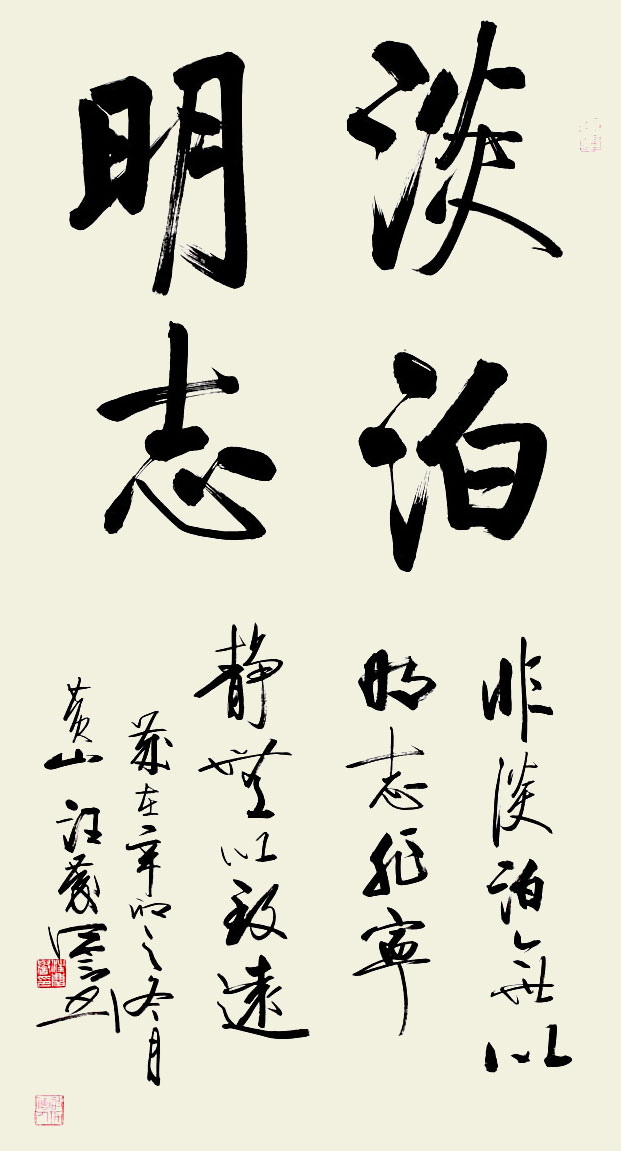 淡泊
明志
非淡泊無以
明志非寧
静無以致遠
歲在辛卯之冬月
黄山汪